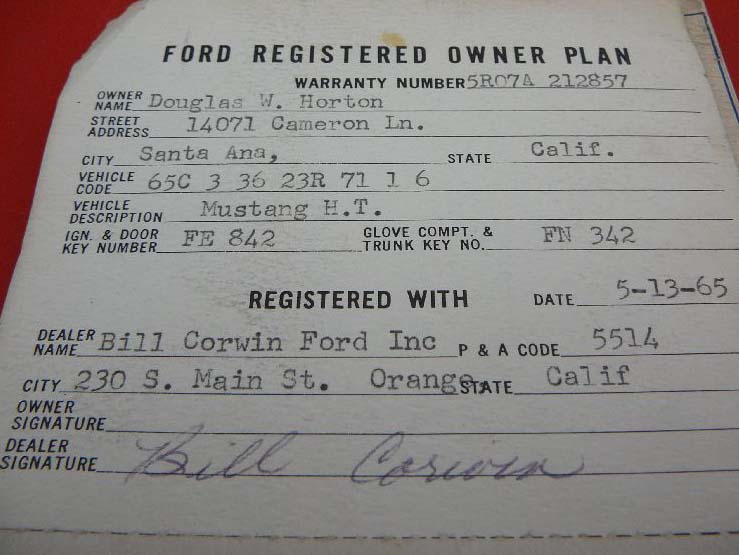 FORD REGISTERED OWNER PLAN
WARRANTY NUMBER 5R07A 212857
OWNER NAME Douglas W. Horton
STREET ADDRESS 14071 Cameron Ln.
CITY Santa Ana, STATE Calif.
VEHICLE CODE 65C 3 36 23R 71 1 6
VEHICLE DESCRIPTION Mustang H.T.
IGN. & DOOR KEY NUMBER FE 842 GLOVE COMPT. & TRUNK KEY NO. FN 342
REGISTERED WITH DATE 5-13-65
DEALER NAME Bill Corwin Ford Inc P & A CODE 5514
CITY 230 S. Main St. Orange STATE Calif
OWNER SIGNATURE
DEALER SIGNATURE Bill Corwin